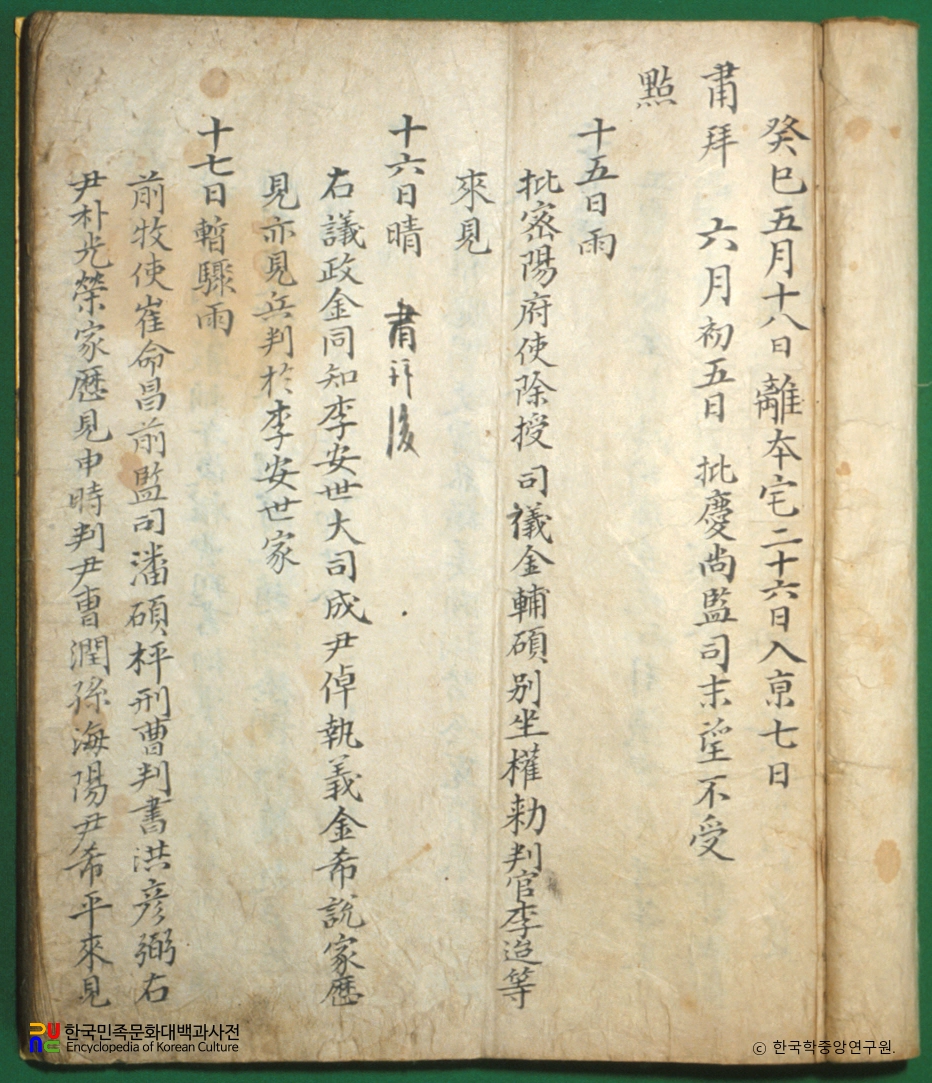 癸巳五月十八日離本宅二十六日入京七日
肅拜 六月初五日 批慶尚監司末望不受
點
十五日雨
批密陽府使除授 司議金輔碩別坐權勑判官李迨等
來見
十六日晴 肅拜後
右議政金同知李安世大司成尹倬執義金希說家歷
見亦見兵判於李安世家
十七日暫驟雨
前牧使崔命昌前監司潘碩枰刑曹判書洪彦弼右
尹朴光榮家歷見申時判尹曹潤孫海陽尹希平來見
한국민족문화대백과사전
Encyclopedia of Korean Culture
ⓒ 한국학중앙연구원.